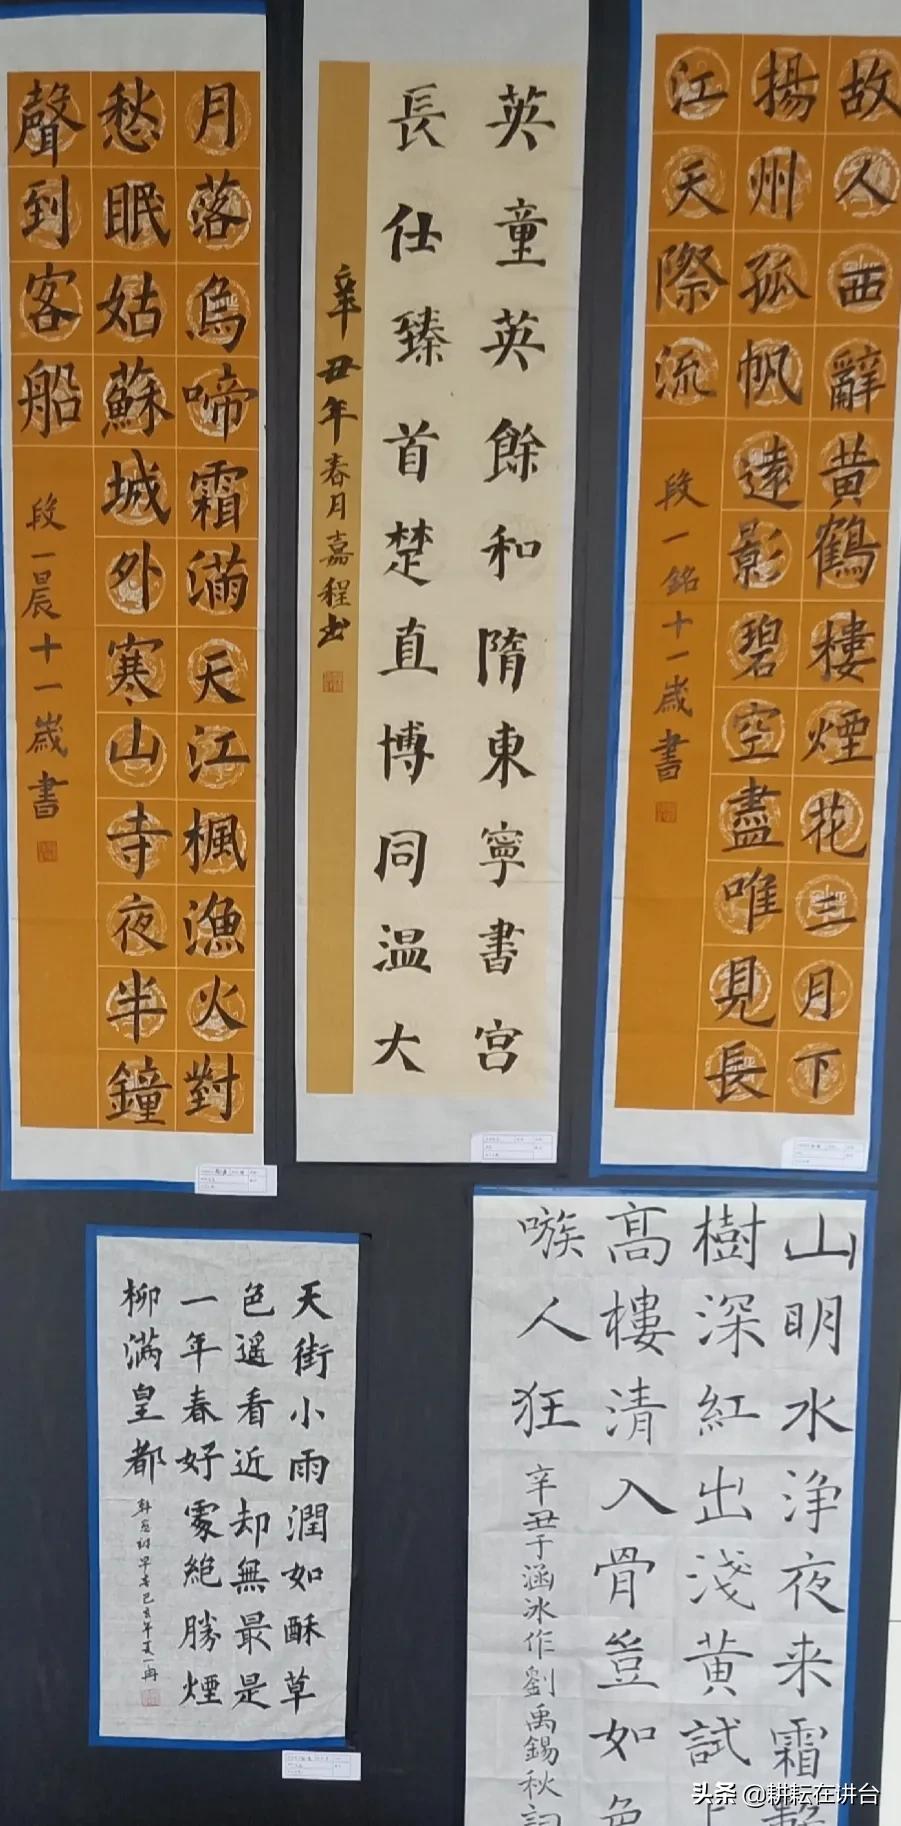 月落烏啼霜滿天江楓漁火對
愁眠姑蘇城外寒山寺夜半鐘
聲到客船
段一晨十一歲書
英童英餘和隋東寧書宮
長仕臻首楚直博同温大
辛丑年春月嘉程书
故人西辭黃鶴樓煙花三月下
揚州孤帆遠影碧空盡唯見長
江天際流
段一銘十一歲書
天街小雨潤如酥草
色遥看近却無最是
一年春好處絕勝煙
柳滿皇都
韩愈詩早春己亥年夏一冉
山明水浄夜来霜數
樹深紅出淺黃試下
高樓清入骨豈如色
嗾人狂
辛丑于涵冰作劉禹錫秋詞
头条 @耕耘在讲台